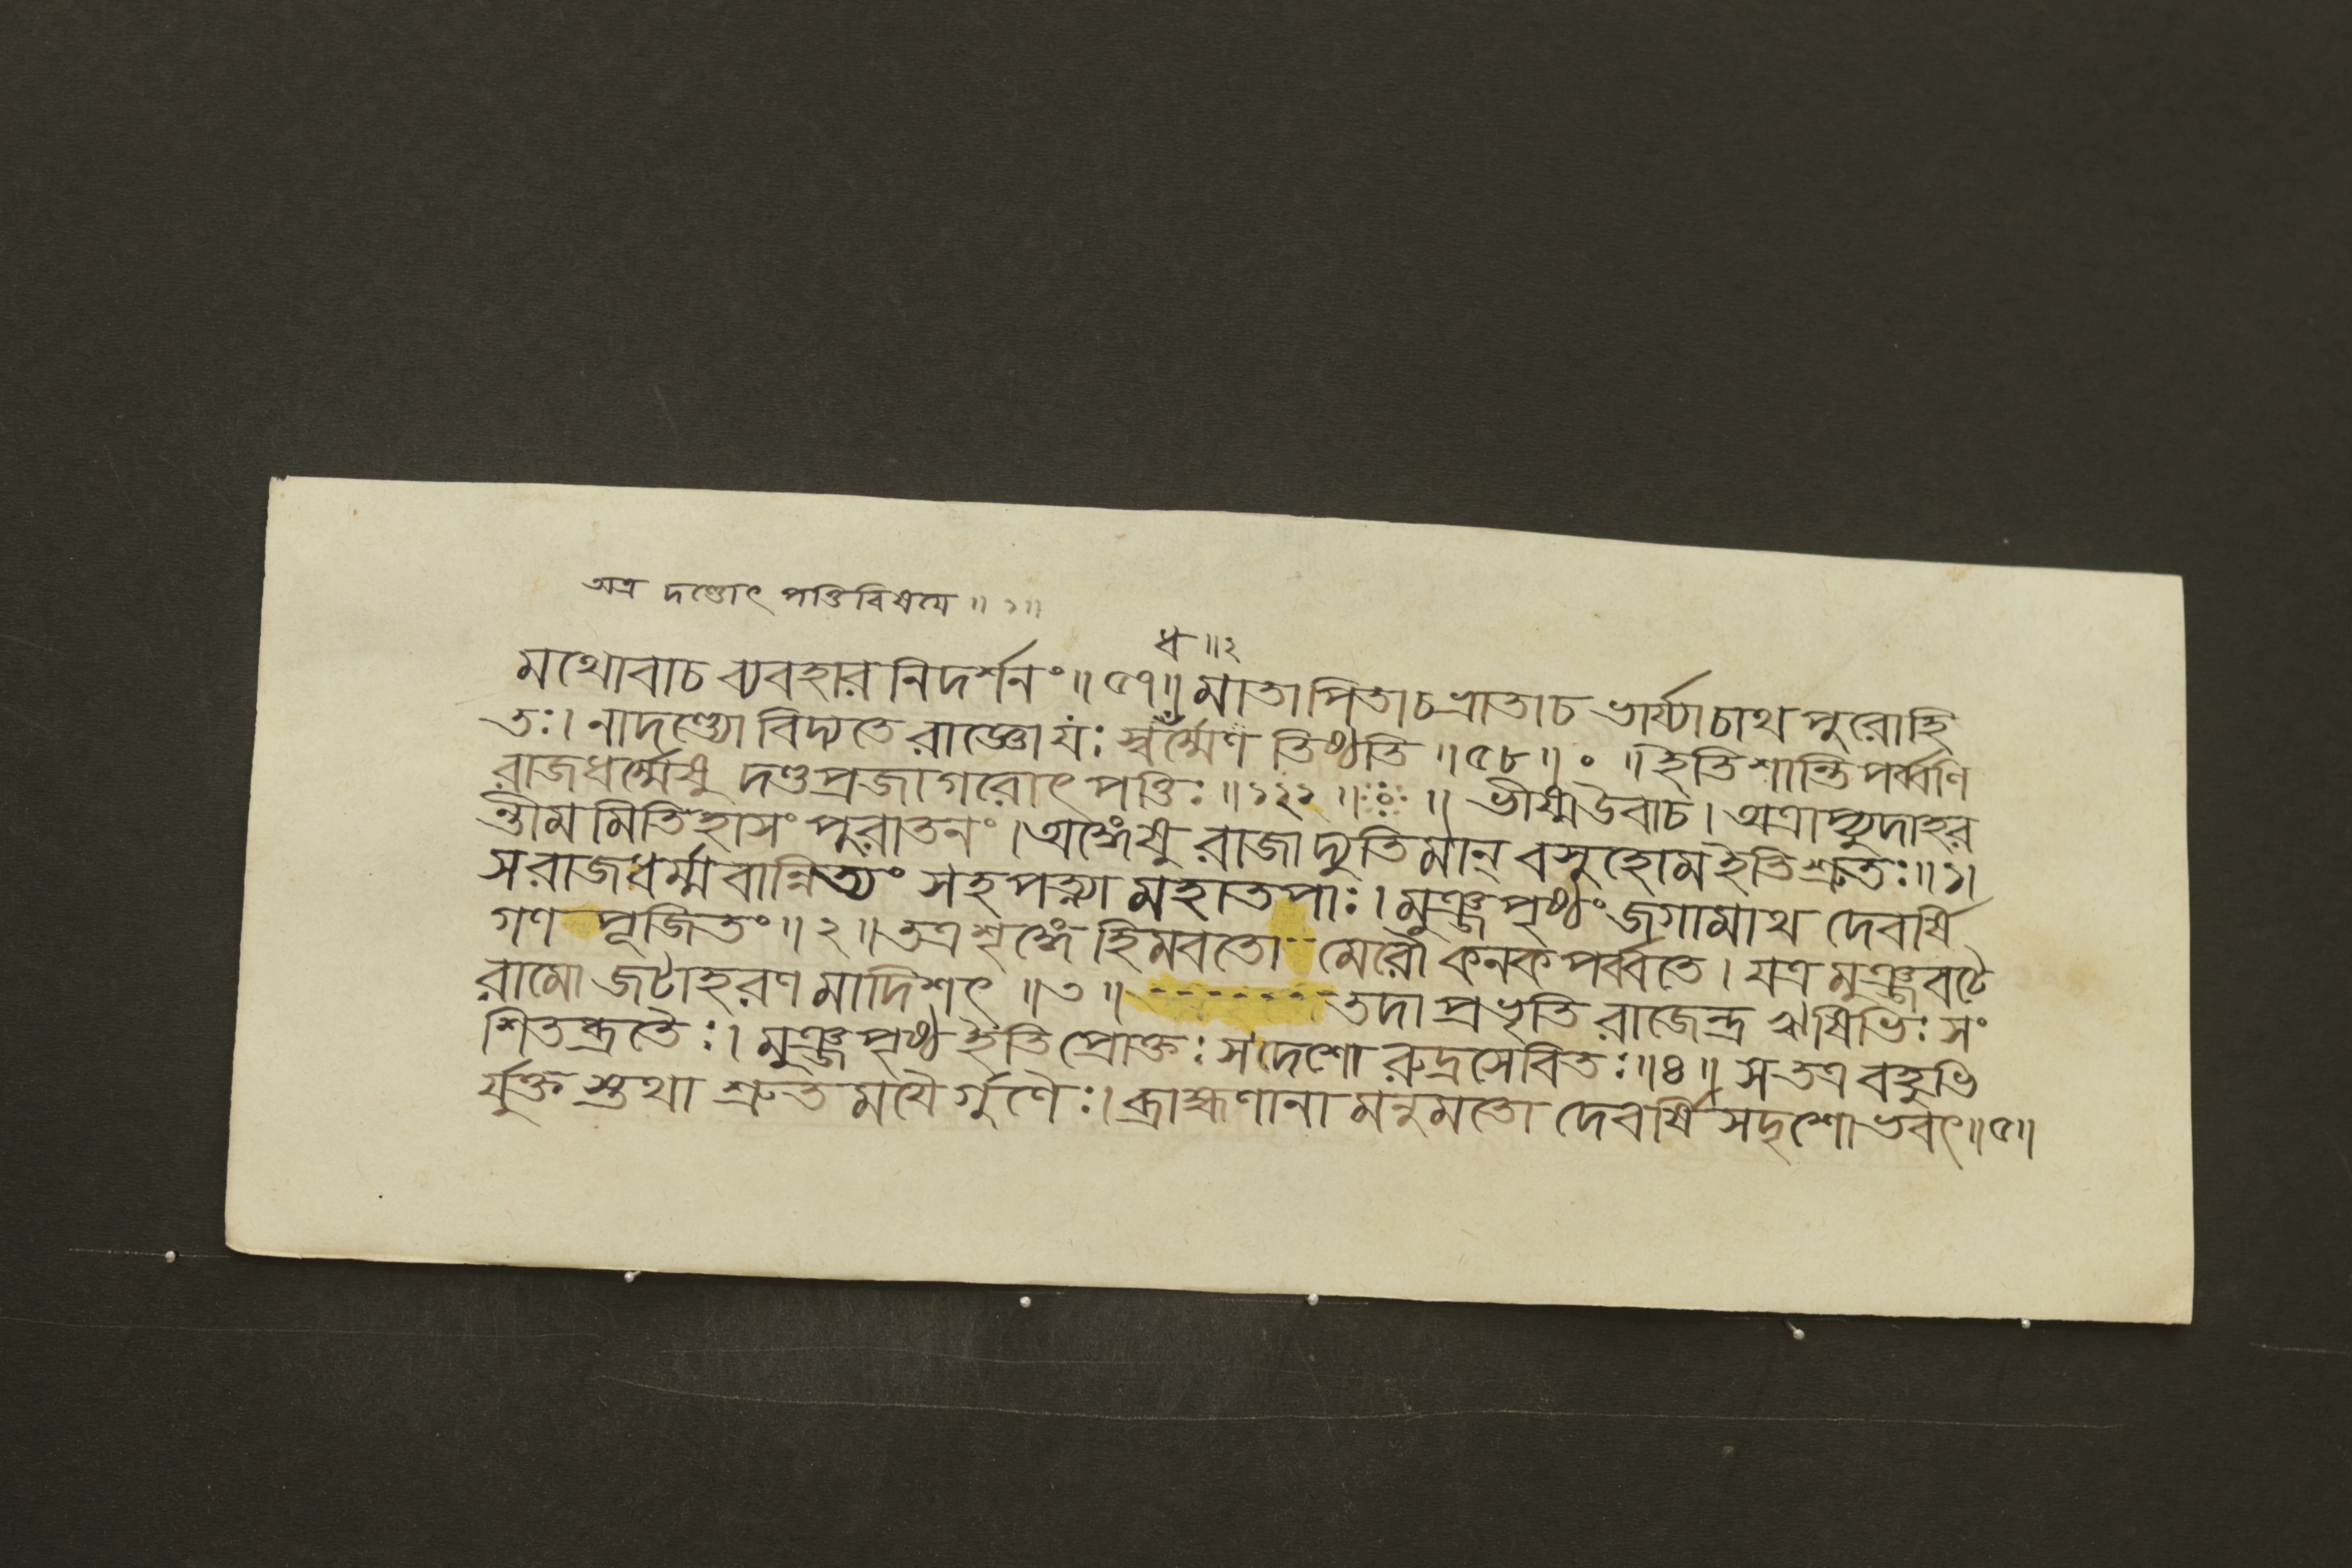 অত্র দণ্ডোৎ পত্তিবিষয়ে ॥ ১॥
ধ ॥২
মথোবাচ ব্যবহার নিদর্শনং॥ ৫৭॥ মাতা পিতাচ ভ্রাতাচ ভার্য্যাচাথ পুরোহি
তঃ। নাদণ্ড্যো বিদ্যতে রাজ্ঞো যঃ স্বধর্ম্মেণ তিষ্ঠতি ॥ ৫৮॥ ॰ ॥ ইতি শান্তি পর্ব্বণি
রাজধর্ম্মেষু দণ্ডপ্রজাগরোৎ পত্তিঃ ॥ ১২১ ॥ ॥ ভীষ্মউবাচ। অত্রাপ্যুদাহর
ন্তীম মিতিহাসং পুরাতনং। অঙ্গেষু রাজা দ্যুতিমান্ বসুহোম ইতি শ্রুতঃ॥ ১।
স রাজধর্ম্মবান্নিত্যং সহ পত্ন্যা মহাতপাঃ। মুঞ্জপৃষ্ঠং জগামাথ দেবর্ষি
গণ পূজিতং॥ ২॥ তত্র শৃঙ্গে হিমবতো-- মেরৌ কনক পর্ব্বতে। যত্র মুঞ্জবটে
রামো জটাহরণ মাদিশৎ ॥ ৩ ॥ -------- তদা প্রভৃতি রাজেন্দ্র ঋষিভিঃ সং
শিতব্রতৈঃ। মুঞ্জপৃষ্ঠ ইতি প্রোক্তঃ স দেশো রুদ্রসেবিতঃ॥৪॥ স তত্র বহুভি
র্যুক্ত স্তথা শ্রুত ময়ৈর্গুণৈঃ। ব্রাহ্মণানা মনুমতো দেবর্ষি সদৃশোভবৎ॥৫॥